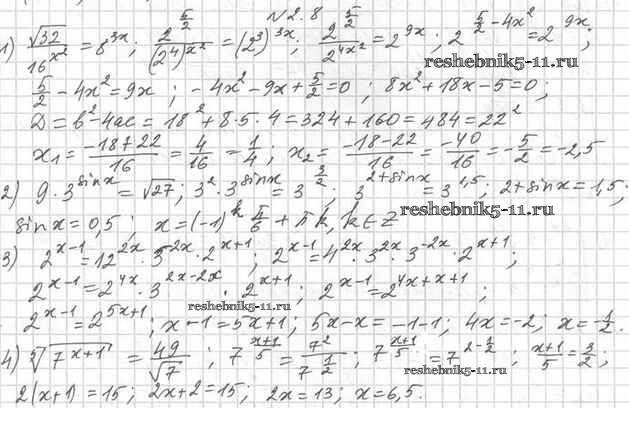 N2.8
1) √32/16^(x²) = 8^(3x); 2^(5/2)/(2^4)^(x²) = (2^3)^(3x); 2^(5/2)/2^(4x²) = 2^(9x); 2^(5/2 - 4x²) = 2^(9x);
reshebnik5-11.ru
5/2 - 4x² = 9x; -4x² - 9x + 5/2 = 0; 8x² + 18x - 5 = 0;
D = b² - 4ac = 18² + 8·5·4 = 324 + 160 = 484 = 22²
x₁ = (-18+22)/16 = 4/16 = 1/4; x₂ = (-18-22)/16 = -40/16 = -5/2 = -2,5
2) 9·3^(sinx) = √27; 3²·3^(sinx) = 3^(3/2); 3^(2+sinx) = 3^(1,5); 2+sinx = 1,5;
sinx = 0,5; x = (-1)^k π/6 + πk, k∈Z
reshebnik5-11.ru
3) 2^(x-1) = 12^(2x)·3^(-2x)·2^(x+1); 2^(x-1) = 4^(2x)·3^(2x)·3^(-2x)·2^(x+1);
2^(x-1) = 2^(4x)·3^(2x-2x)·2^(x+1); 2^(x-1) = 2^(4x+x+1);
reshebnik5-11.ru
2^(x-1) = 2^(5x+1); x-1 = 5x+1; 5x-x = -1-1; 4x = -2; x = -1/2.
4) ⁵√(7^(x+1)) = 49/√7; 7^((x+1)/5) = 7²/7^(1/2); 7^((x+1)/5) = 7^(2-1/2); (x+1)/5 = 3/2;
reshebnik5-11.ru
2(x+1) = 15; 2x+2 = 15; 2x = 13; x = 6,5.